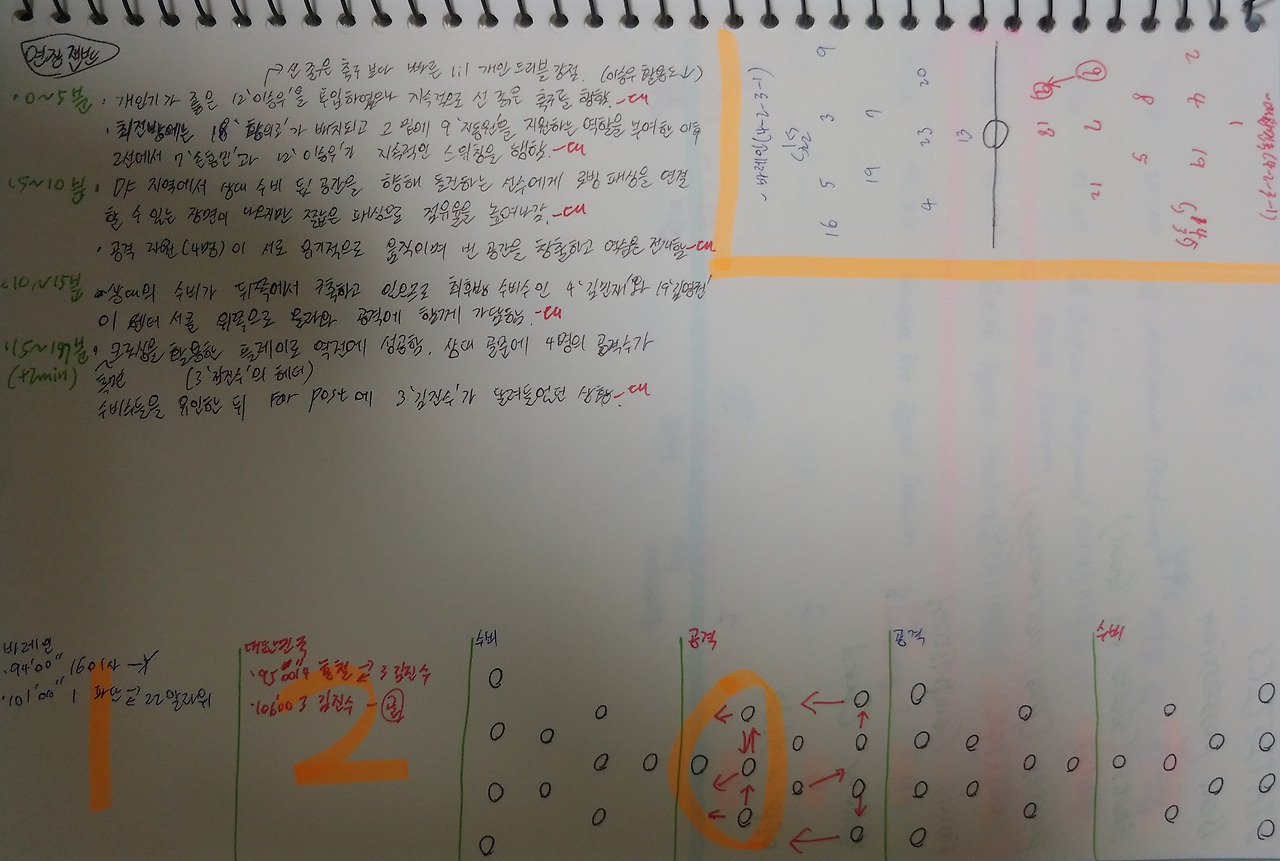 연장 전반
→ 선 굵은 축구 보다 빠른 1:1 개인 드리블 강점. (이승우 활용도↓)
·0~5분 · 개인기가 좋은 12'이승우'를 투입하였으나 지속적으로 선 굵은 축구를 행함.
· 최전방에는 18'황의조'가 배치되고 그 밑에 9'지동원'을 지원하는 역할을 부여한 이후
2선에서 7'손흥민'과 12'이승우'가 지속적인 스위칭을 행함.
·5~10분 · MF 지역에서 상대 수비 뒷 공간을 향해 돌진하는 선수에게 로빙 패싱을 연결
할 수 있는 장면이 나오지만 짧은 패싱으로 점유율을 높여나감.
· 공격 자원(4명)이 서로 유기적으로 움직이며 빈 공간을 창출하고 역습을 전개함
·10~15분 상대의 수비가 뒤쪽에서 구축하고 있으므로 최후방 수비수인 4'김민재'와 19'김영권'
이 센터 서클 위쪽으로 올라와 공격에 함께 가담함.
·15~17분 · 크로싱을 활용한 플레이로 역전에 성공함. 상대 골문에 4명의 공격수가
(+2min) (3'김진수'의 헤더)
수비수들을 유인한 뒤 Far post에 3'김진수'가 달려들었던 상황.
~바레인(4-2-3-1)
9 3 5 16
7 19
20 23 4
13
18
9
7 12
8 5
2 4 19
1
바레인
·94'00" 16
·101'00" 1 ⇄ 22
1
대한민국
·95'00" 14 홍철 ⇄ 3 김진수
·106'00 3 김진수 - 골
2
수비
공격
공격
수비